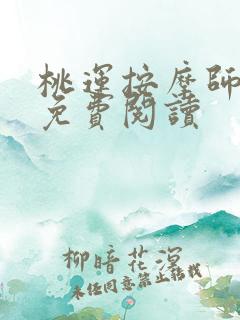 桃運按摩師
免費閱讀
柳暗花溟
未經同意禁止轉載